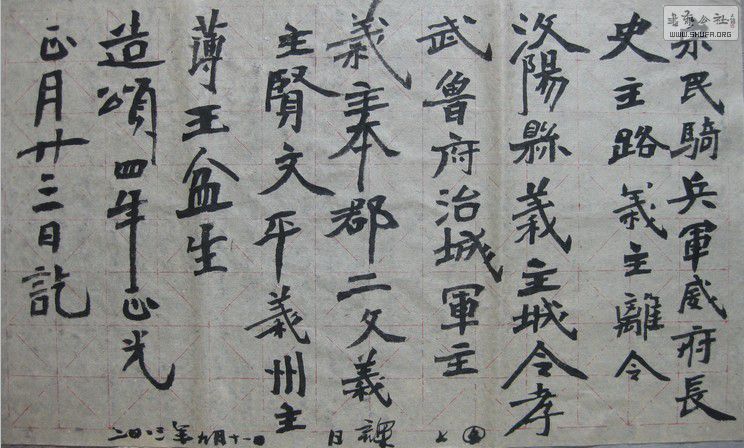 民騎兵軍威府長
史主路義主離令
洛陽縣義主城令孝
武魯府治城軍主
義主本郡二文義
主賢文平義州主
薄王盆生
造頌四年正光
正月廿三日訖
二〇一三年九月十一日 日課
書法公社
WWW.SHUFA.ORG